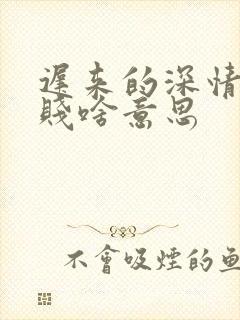 遲來的深情
賤啥意思
不會吸煙的魚